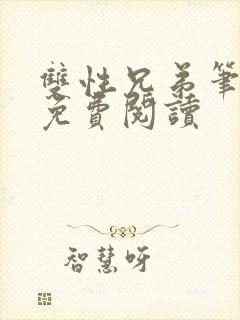 雙性兄弟筆
免費閱讀
智慧呀